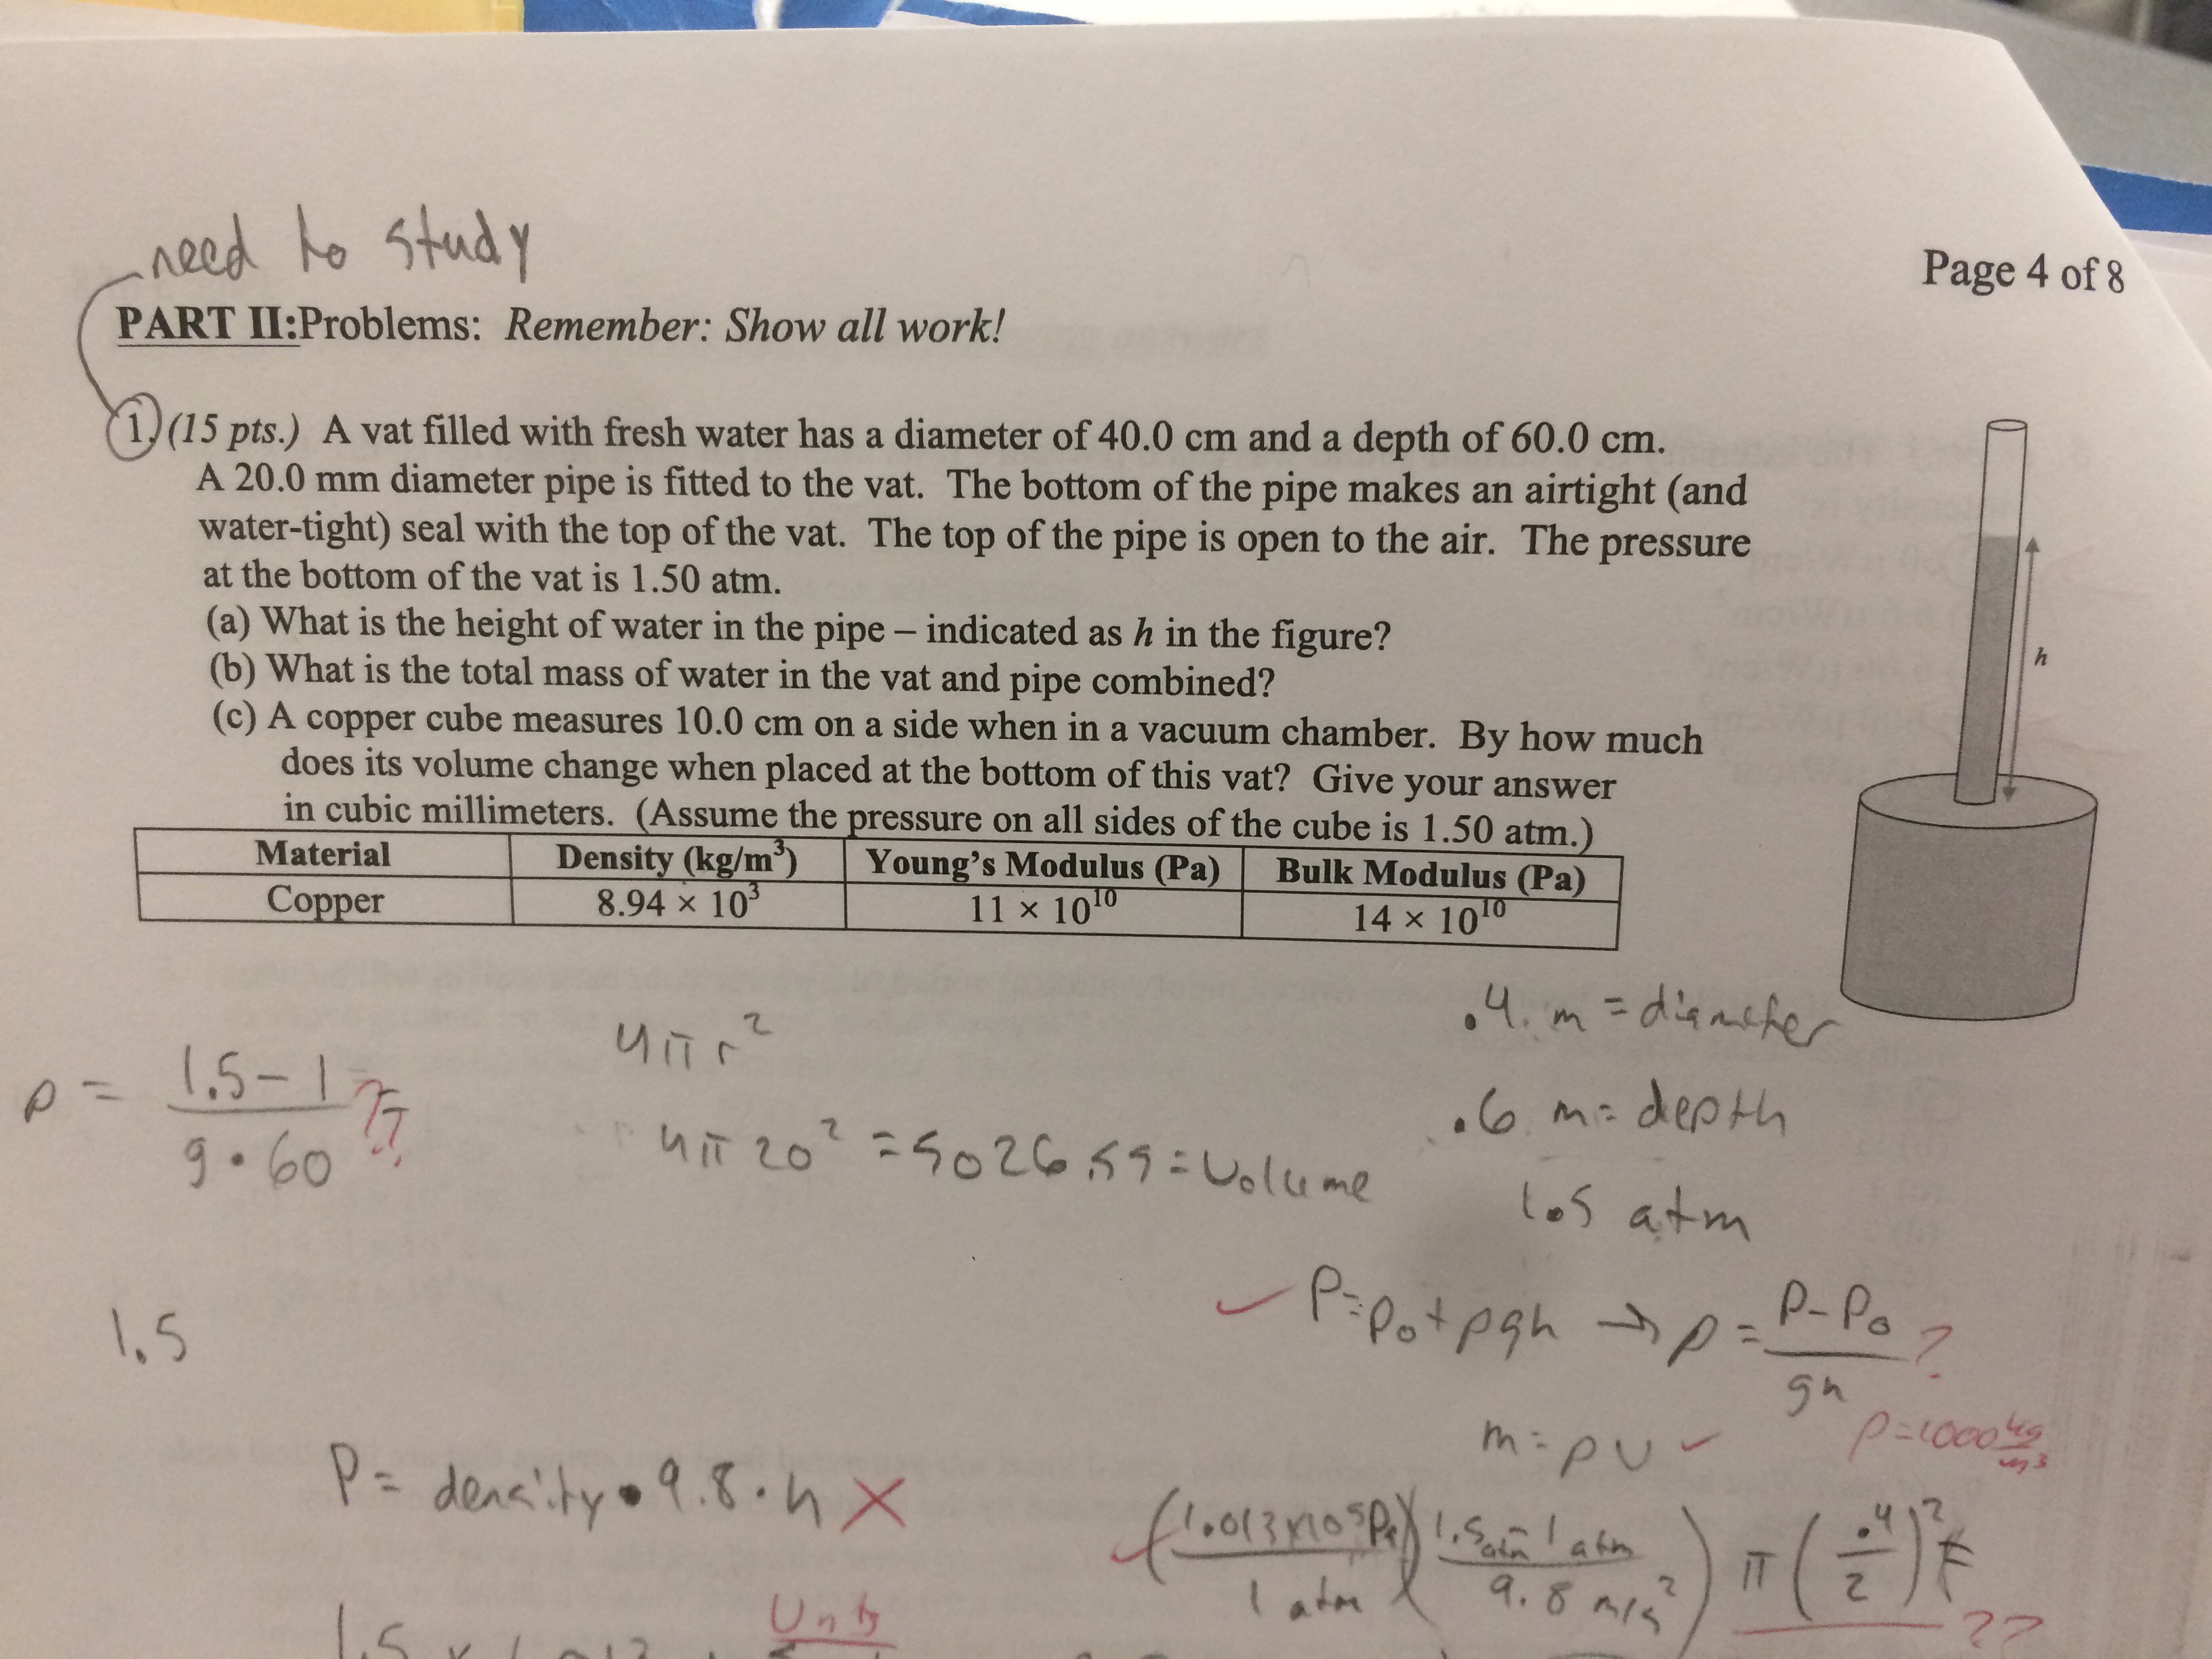 need to study
Page 4 of 8
PART II:Problems: Remember: Show all work!
1. (15 pts.) A vat filled with fresh water has a diameter of 40.0 cm and a depth of 60.0 cm.
A 20.0 mm diameter pipe is fitted to the vat. The bottom of the pipe makes an airtight (and
water-tight) seal with the top of the vat. The top of the pipe is open to the air. The pressure
at the bottom of the vat is 1.50 atm.
(a) What is the height of water in the pipe – indicated as h in the figure?
(b) What is the total mass of water in the vat and pipe combined?
(c) A copper cube measures 10.0 cm on a side when in a vacuum chamber. By how much
does its volume change when placed at the bottom of this vat? Give your answer
in cubic millimeters. (Assume the pressure on all sides of the cube is 1.50 atm.)
h
Material Density (kg/m³) Young's Modulus (Pa) Bulk Modulus (Pa)
Copper 8.94 × 10³ 11 × 10¹⁰ 14 × 10¹⁰
.4 m = diameter
ρ = (1.5 - 1)/(9 · 60) ??
4πr²
.6 m = depth
4π20² = 5026.55 = Volume
1.5 atm
1.5
✓ P = P₀ + ρgh → ρ = (P - P₀)/(gh) ?
m = ρV ✓
ρ = 1000 kg/m³
P = density · 9.8 · h X
✓ (1.013×10⁵Pa/1 atm)(1.5 atm - 1 atm/9.8 m/s²) π(.4/2)² ??
Units
1.5 x